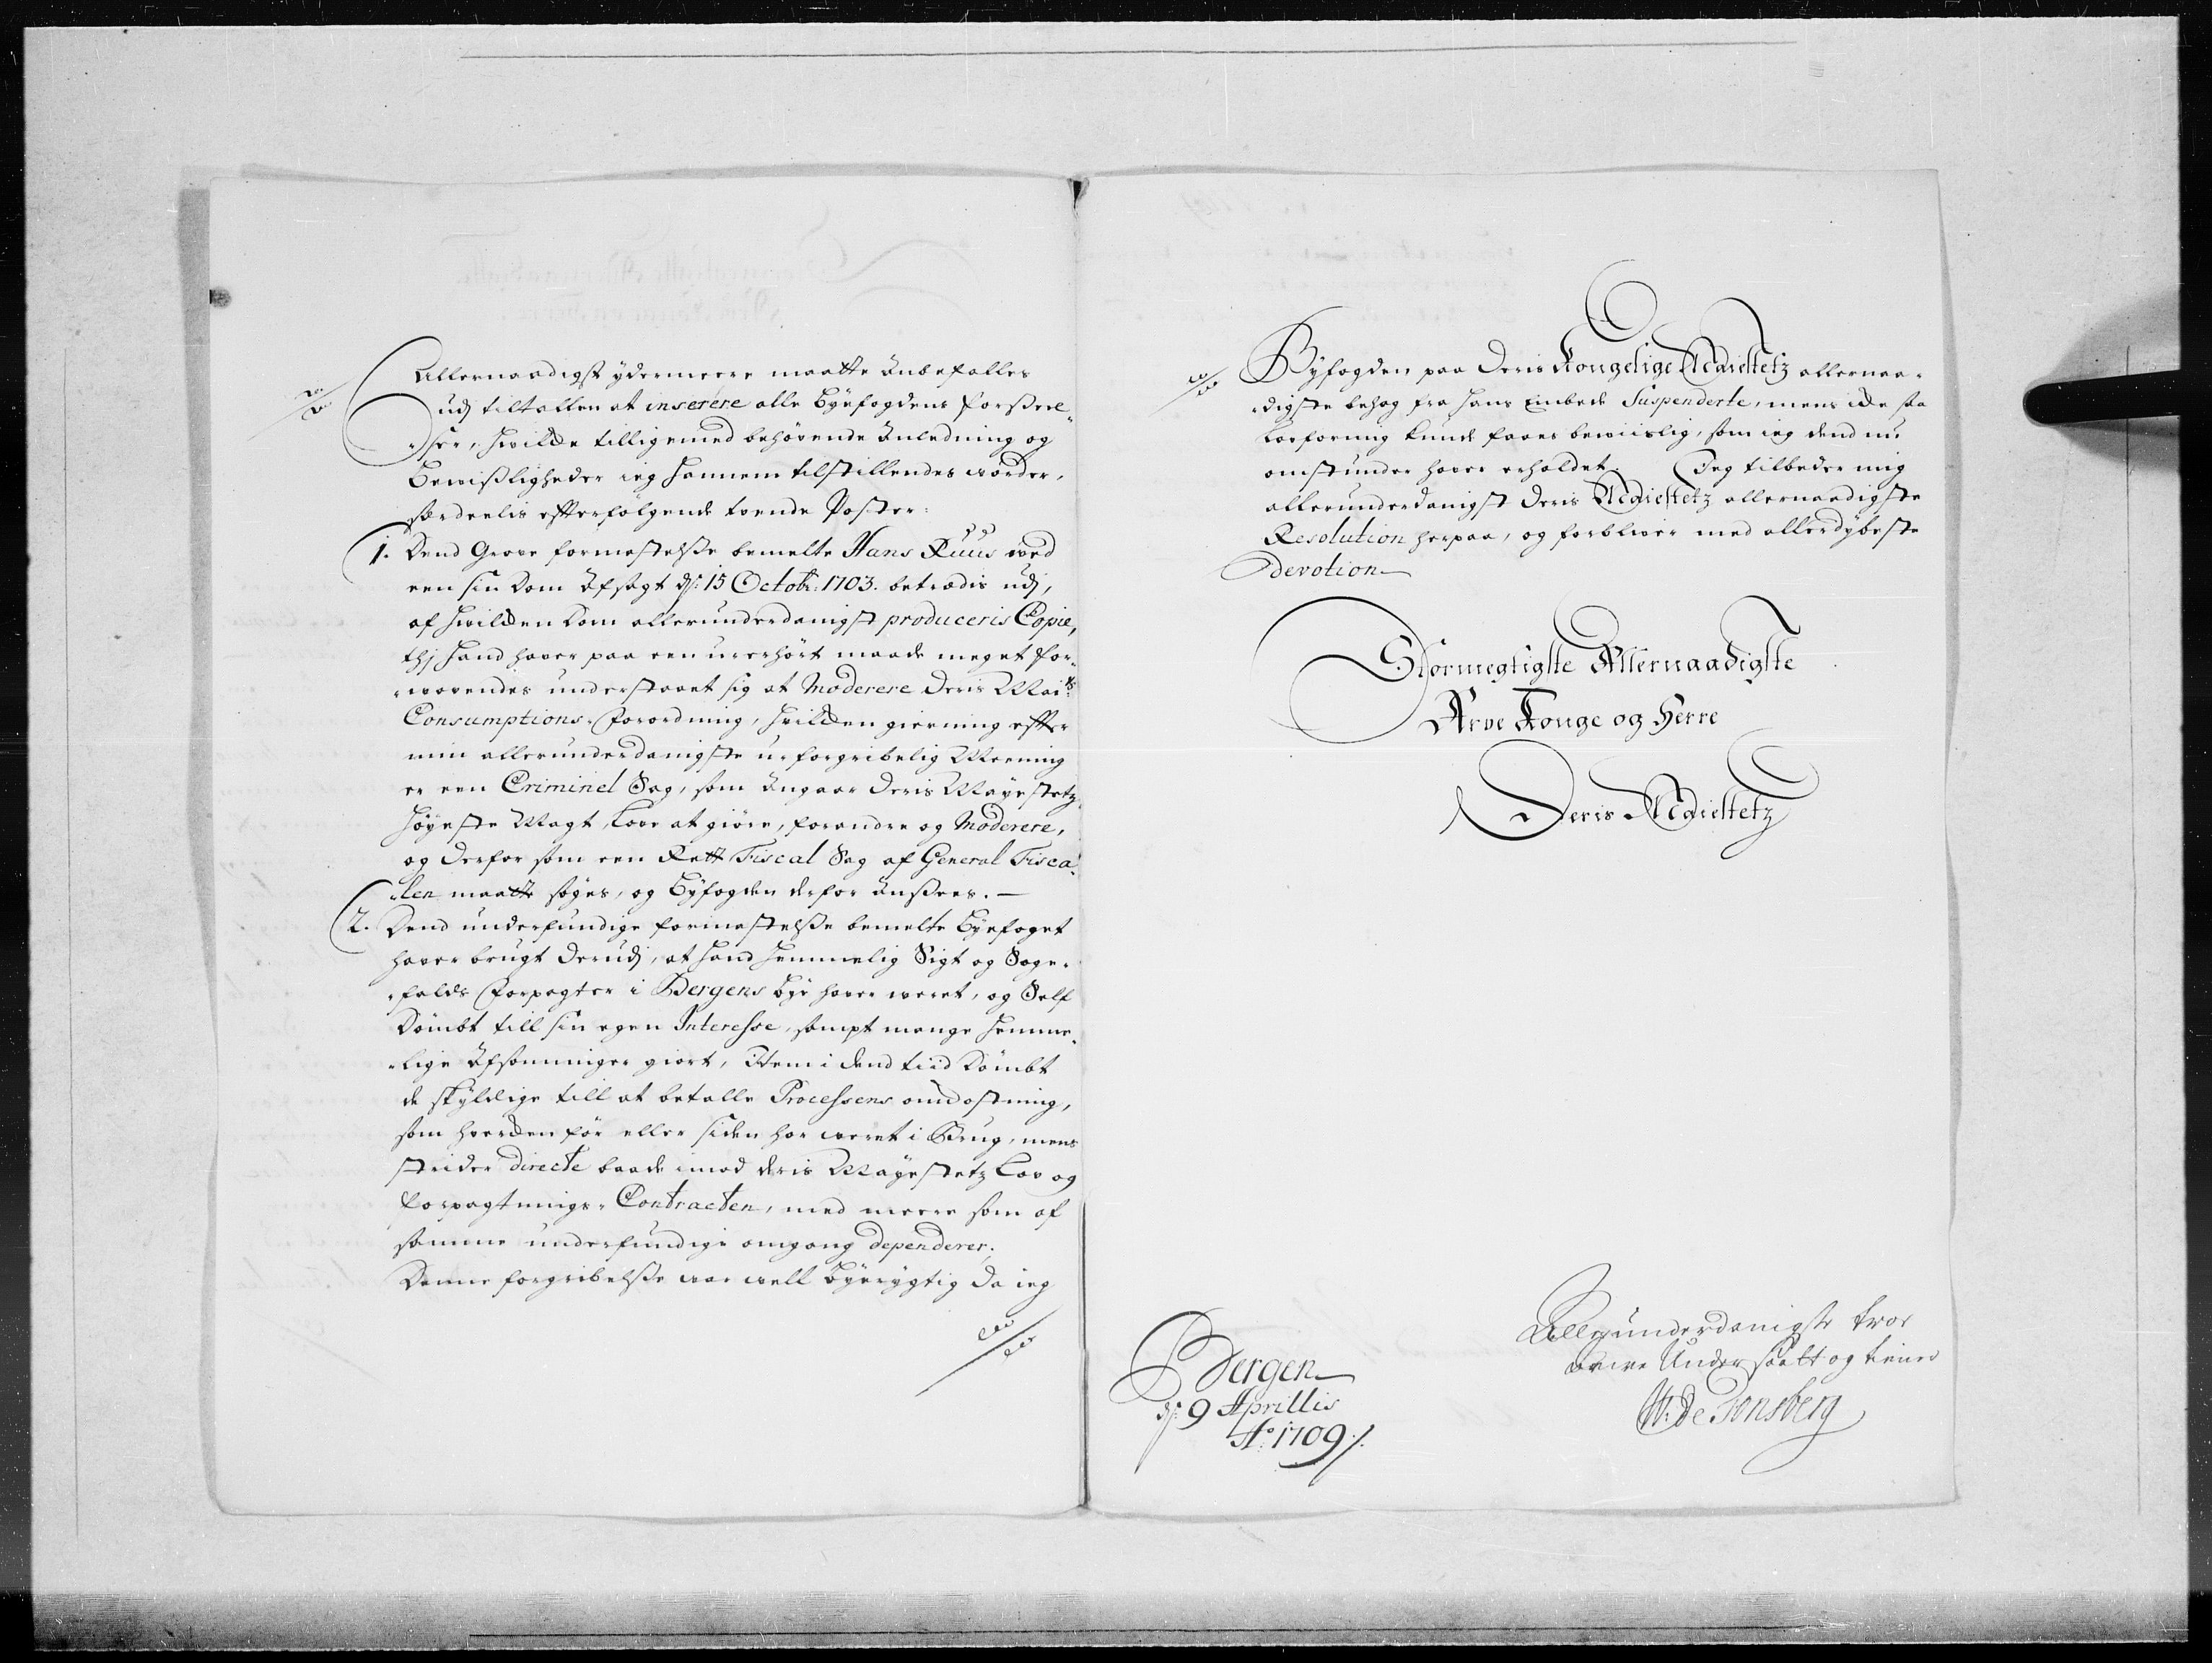 Allernaadigst ydermeere maatte anbefalles
udj tiltallen at inserere alle byefogdens forseel¬
ser, hvilcke tilligemed behøvende anledning og
bevisligheder ieg hannem tilstillendes vorder,
særdeelis efterfølgende tvende Poster:
1. Dend Grove formastelse bemelte Hans Ruus ved
een sin Dom afsagt d: 15 Octobr: 1703. betrædis udj,
af hvilcken Dom allerunderdanigst produceris Copie,
thj hand haver paa een uerhørt maade meget for¬
vovendes understaaet sig at Moderere Deris Maits:
Consumptions-forordning, hvilcken gierning effter
min allerunderdanigste u-forgribelig Meening
er een Criminel Sag, som angaar Deris Mayestetz
høyeste Magt, Love at giøre, forandre og Moderere,
og derfor som een Rett Fiscal Sag af General Fisca¬
len maatte søges, og byfogden derfor ansees.
2. Dend underfundige formastelse bemelte byefoget
haver brugt derudj, at hand hemmelig Sigt og Sage¬
falds Forpagter i Bergens bye haver veret, og Self
Dømbt till sin egen Interesse, sampt mange hemme¬
lige afsonninger giort, Item i dend tiid Dømbt
de skyldige till at betalle Processens omkostning,
som hvercken før eller siden har veret i Brug, mens
strider directe baade imod deris Mayestetz Lov og
forpagtnings-Contracten, med meere som af
samme underfundige omgang dependerer;
Denne forgribelse var vell byerygtig da ieg
Byfogden paa Deris Kongelige Majestetz allernaa¬
digste behag fra hans Embede Suspenderte, mens icke saa
forfarung kunde faaes beviislig, som ieg dend nu
omstunder haver erholdet. Jeg tilbeder mig
allerunderdanigst Deris Majestetz allernaadigste
Resolution herpaa, og forbliver med allerdybeste
devotion
Stormegtigste Allernaadigste
Arve Konge og Herre
Deris Majestetz
Bergen
d: 9 Aprillis
Ao: 1709 ./.
Allerunderdanigste troe
Arve Undersaatt og tiener
W: De Tonsberg